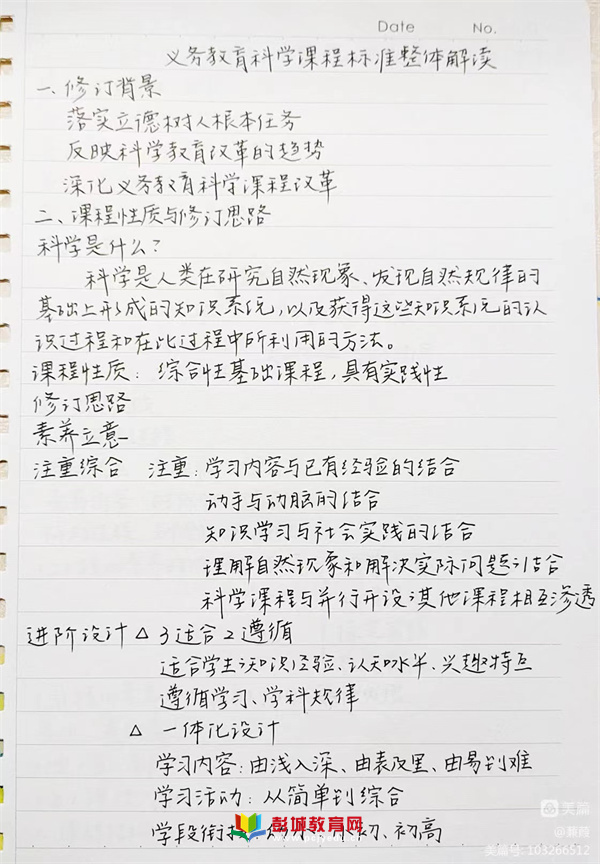 Date No.
义务教育科学课程标准整体解读
一、修订背景
落实立德树人根本任务
反映科学教育改革的趋势
深化义务教育科学课程改革
二、课程性质与修订思路
科学是什么？
科学是人类在研究自然现象、发现自然规律的
基础上形成的知识系统，以及获得这些知识系统的认
识过程和在此过程中所利用的方法。
课程性质：综合性基础课程，具有实践性
修订思路
素养立意
注重综合 注重：学习内容与已有经验的结合
动手与动脑的结合
知识学习与社会实践的结合
理解自然现象和解决实际问题结合
科学课程与并行开设其他课程相互渗透
进阶设计 △ 3适合2遵循
适合学生知识经验、认知水平、兴趣特点
遵循学习、学科规律
△ 一体化设计
学习内容：由浅入深、由表及里、由易到难
学习活动：从简单到综合
学段衔接 初、初高
彭城教育网
美篇
@蒹葭
美篇号：103266512